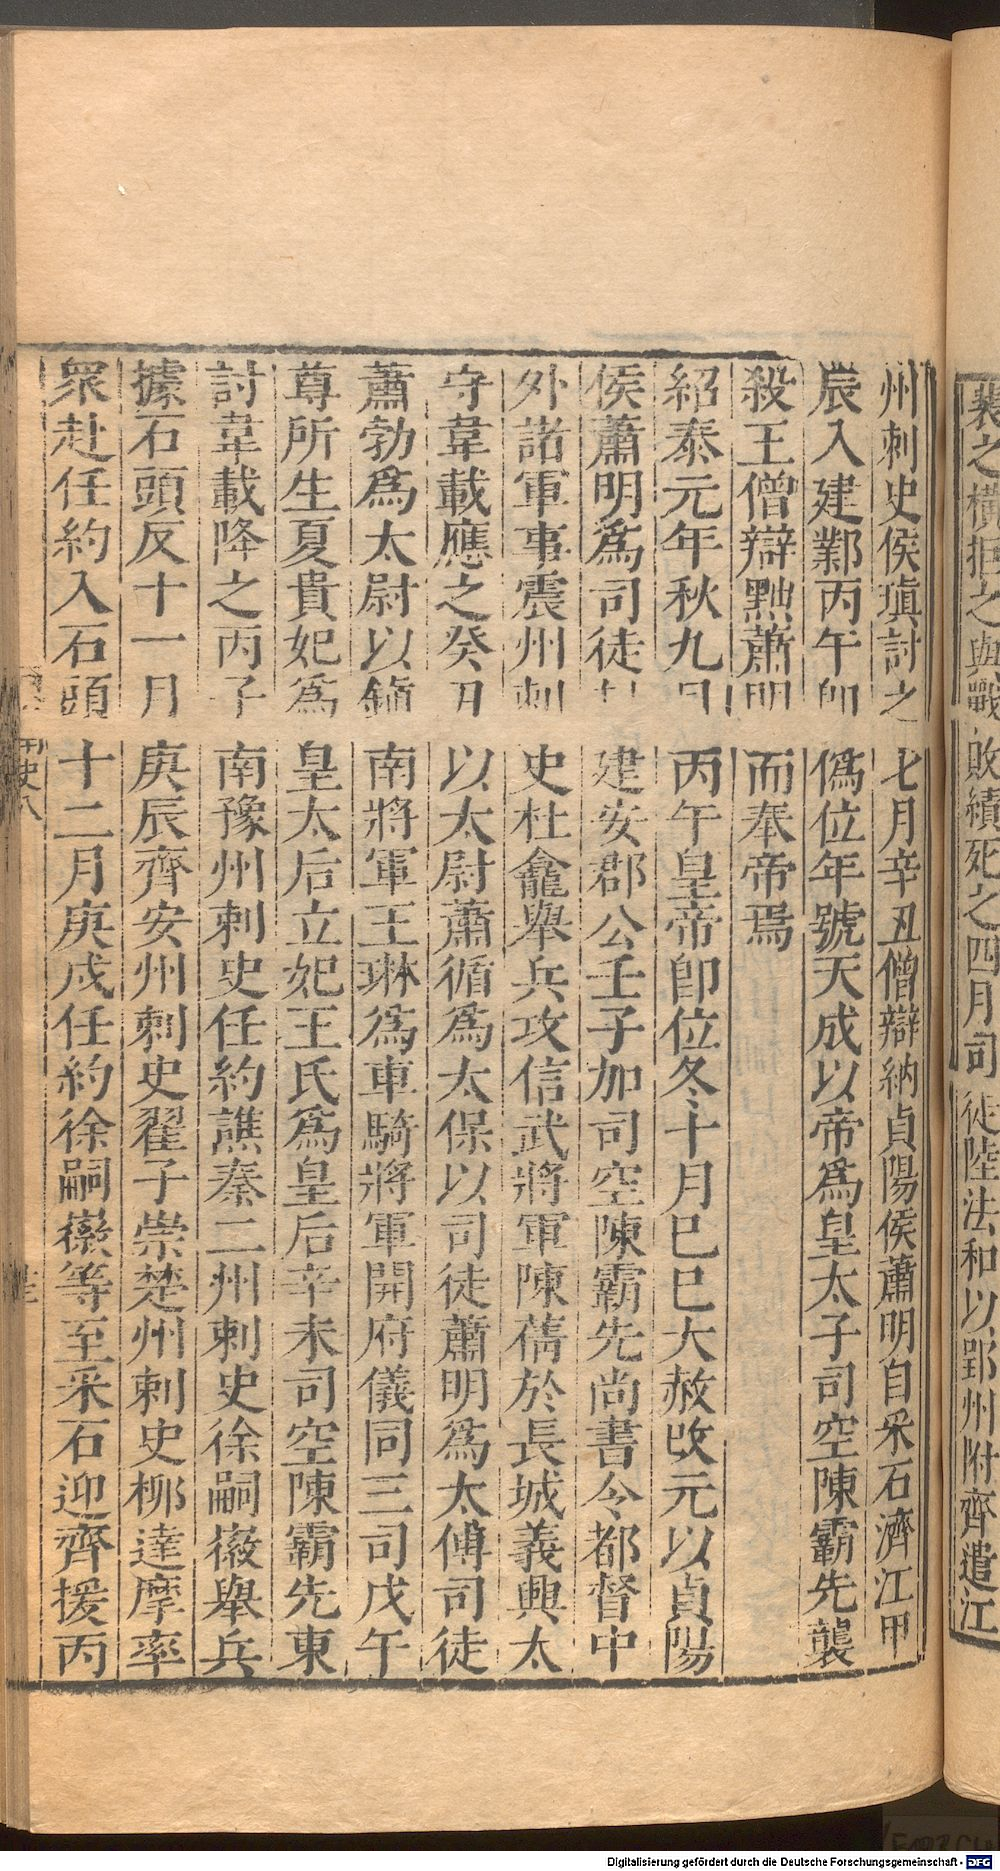 裴之橫拒之與戰敗績死之四月司徒陸法和以郢州附齊遣江
州刺史侯瑱討之七月辛丑僧辯納貞陽侯蕭明自采石濟江甲
辰入建鄴丙午即僞位年號天成以帝爲皇太子司空陳霸先襲
殺王僧辯黜蕭明而奉帝焉
紹泰元年秋九月丙午皇帝卽位冬十月巳巳大赦改元以貞陽
侯蕭明爲司徒封建安郡公壬子加司空陳霸先尚書令都督中
外諸軍事震州刺史杜龕舉兵攻信武將軍陳蒨於長城義興太
守韋載應之癸丑以太尉蕭循爲太保以司徒蕭明爲太傅司徒
蕭勃爲太尉以鎮南將軍王琳爲車騎將軍開府儀同三司戊午
尊所生夏貴妃爲皇太后立妃王氏爲皇后辛未司空陳霸先東
討韋載降之丙子南豫州刺史任約譙秦二州刺史徐嗣徽舉兵
據石頭反十一月庚辰齊安州刺史翟子崇楚州刺史柳達摩率
眾赴任約入石頭十二月庚戌任約徐嗣徽等至采石迎齊援丙
南史八
Digitalisierung gefördert durch die Deutsche Forschungsgemeinschaft - DFG